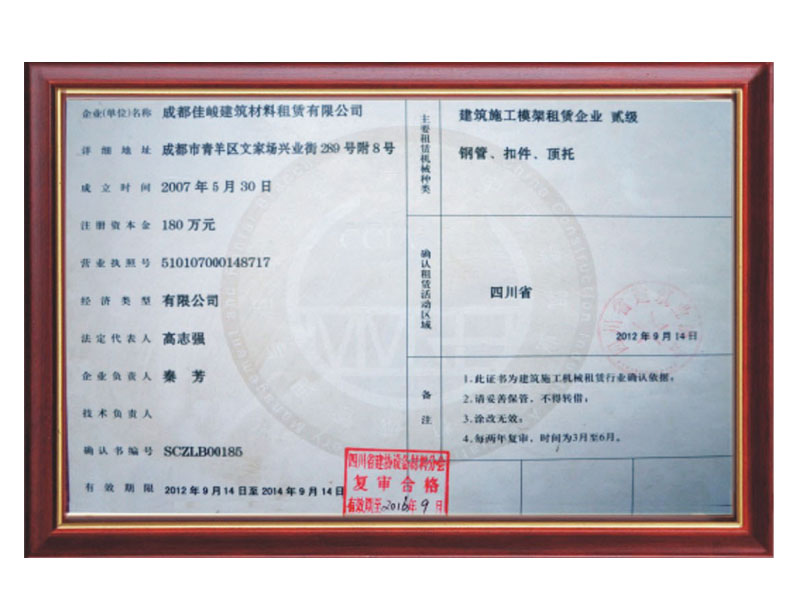 企业(单位)名称 成都佳峻建筑材料租赁有限公司
详细地址 成都市青羊区文家场兴业街289号附8号
成立时间 2007年5月30日
注册资本金 180万元
营业执照号 510107000148717
经济类型 有限公司
法定代表人 高志强
企业负责人 秦 芳
技术负责人
确认书编号 SCZLB00185
有效期限 2012年9月14日至2014年9月14日
主要租赁机械种类
建筑施工模架租赁企业 贰级
钢管、扣件、顶托
确认租赁活动区域
四川省
2012年9月14日
备注
1.此证书为建筑施工机械租赁行业确认依据。
2.请妥善保管，不得转借。
3.涂改无效。
4.每两年复审，时间为3月至6月。
四川省建协设备材料分会
复审合格
有效期至2016年9月